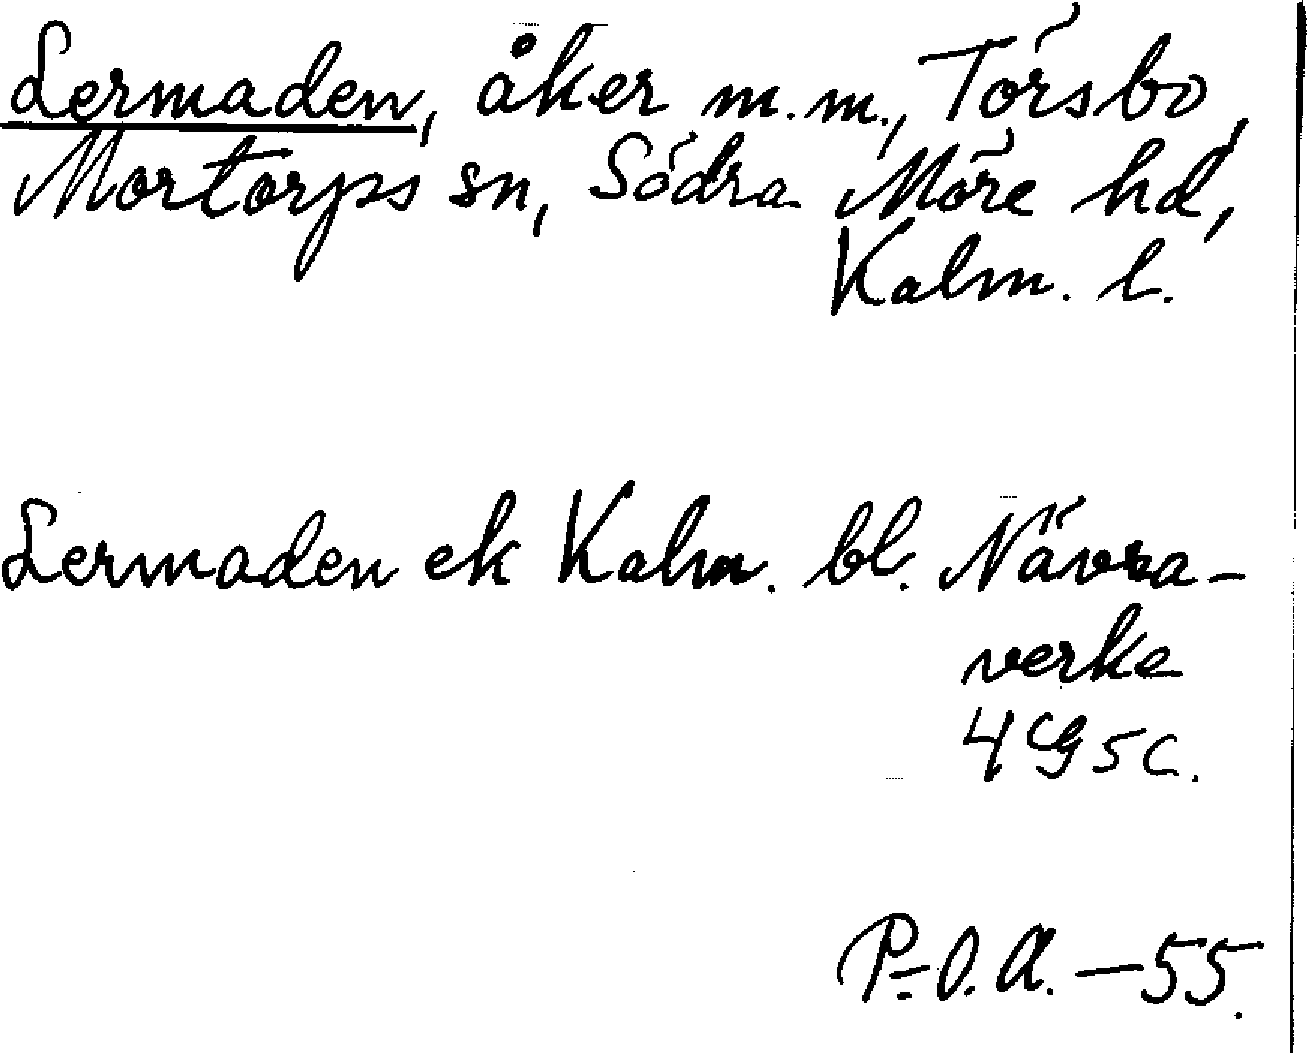 Lermaden, åker m.m., Törsbo,
Mortorps sn, Södra Möre hd,
Kalm. l.
Lermaden ek Kalm. bl. Nävra-
verke
4G5c.
P-O.A. - 55.